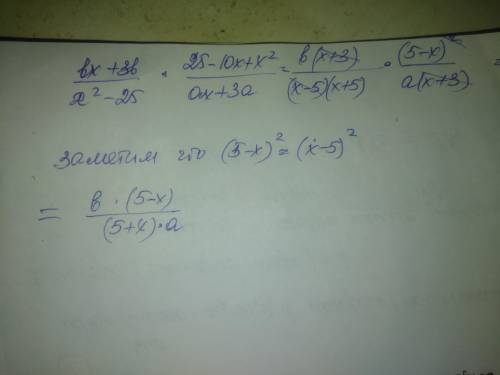 (вх + 3в)/(x² - 25) · (25 - 10x + x²)/(ax + 3a) = (в(x+3))/((x-5)(x+5)) · (5-x)²/(a(x+3)) =
заметим что (5-x)² = (x-5)²
= (в · (5-x))/((5+4) · a)